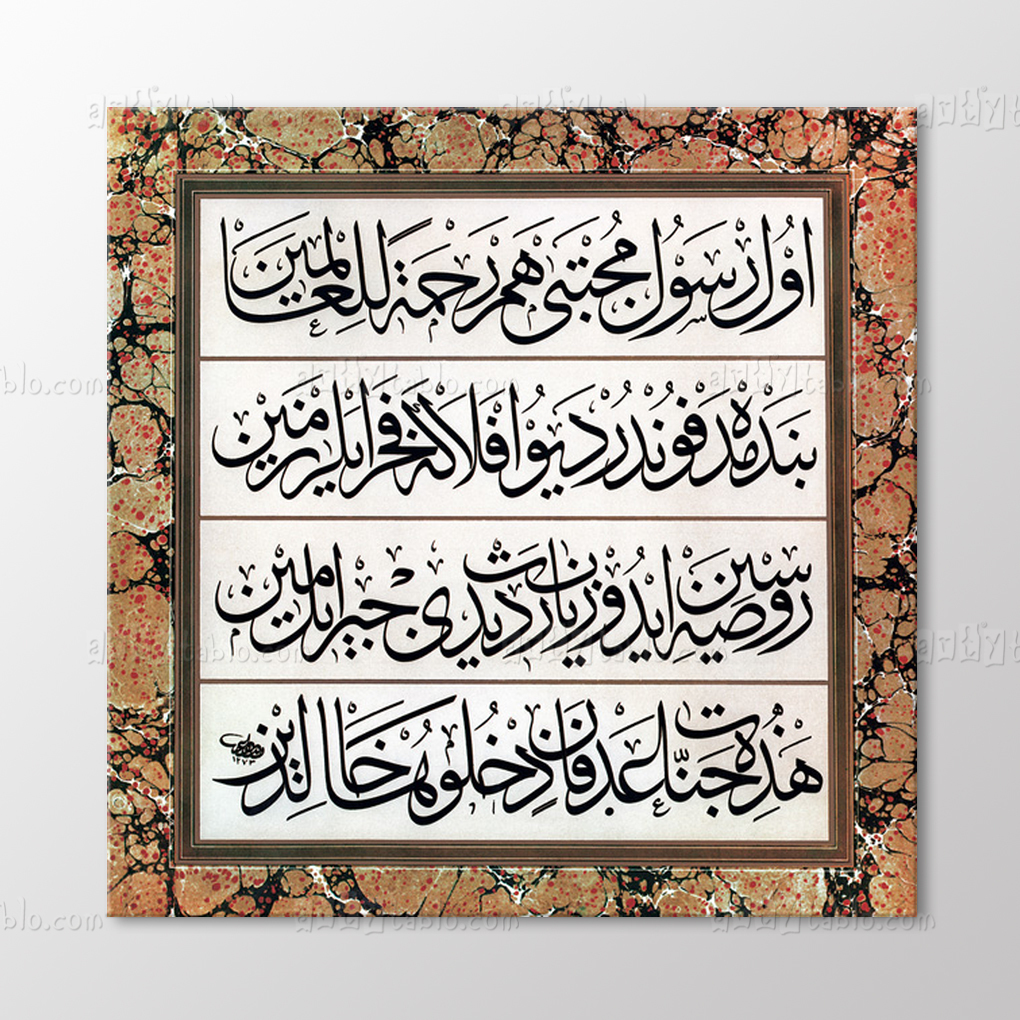 اول رسول مجتبى هم رحمة للعالمين
بنده مدفوندر ديو افلاكه فخر ايلر زمين
روضه سين ايدوب زيارت ديدى جبرائيل امين
هذه جنات عدن فادخلوها خالدين
١٢٧٣
artiyltablo.com